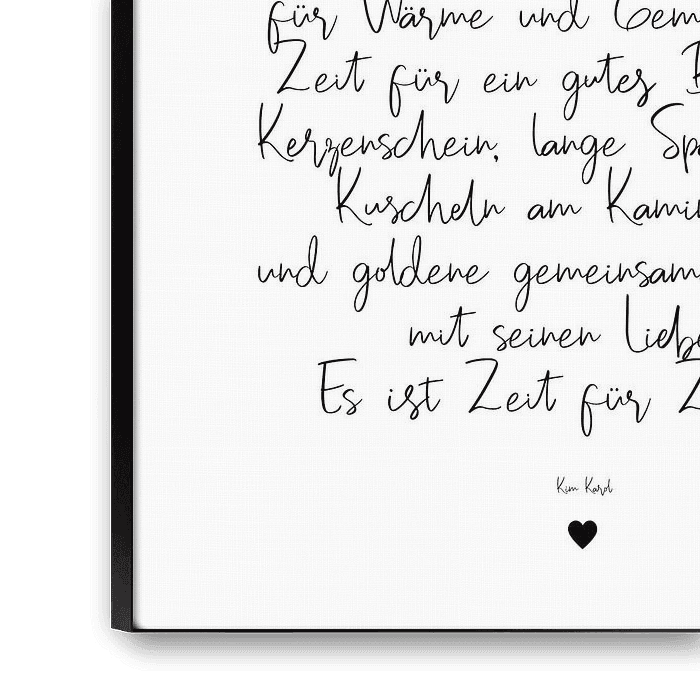 für Wärme und Gem
Zeit für ein gutes B
Kerzenschein, lange Spa
Kuscheln am Kamin
und goldene gemeinsam
mit seinen Liebe
Es ist Zeit für Z
Kim Karol